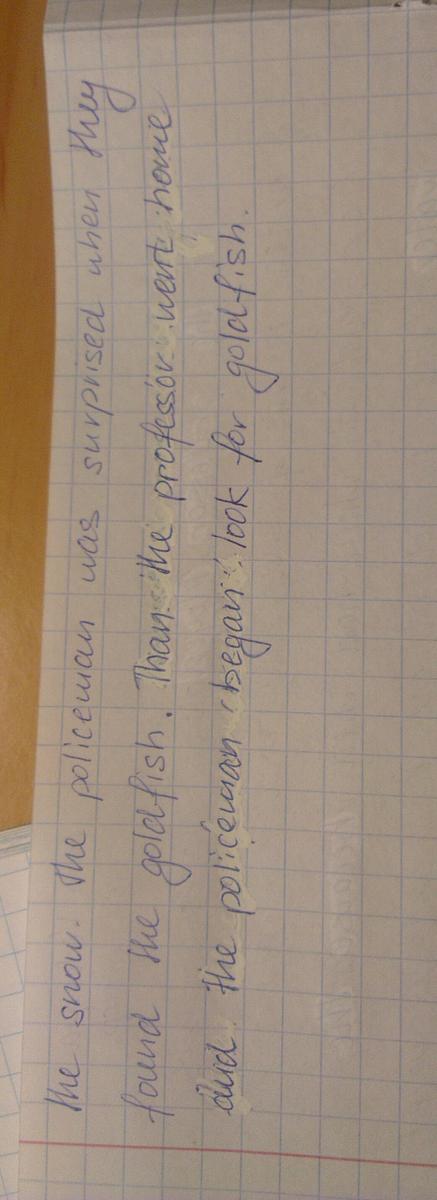 the snow. The policeman was surprised when they
found the goldfish. Than the professor went home
and the policeman began look for goldfish.